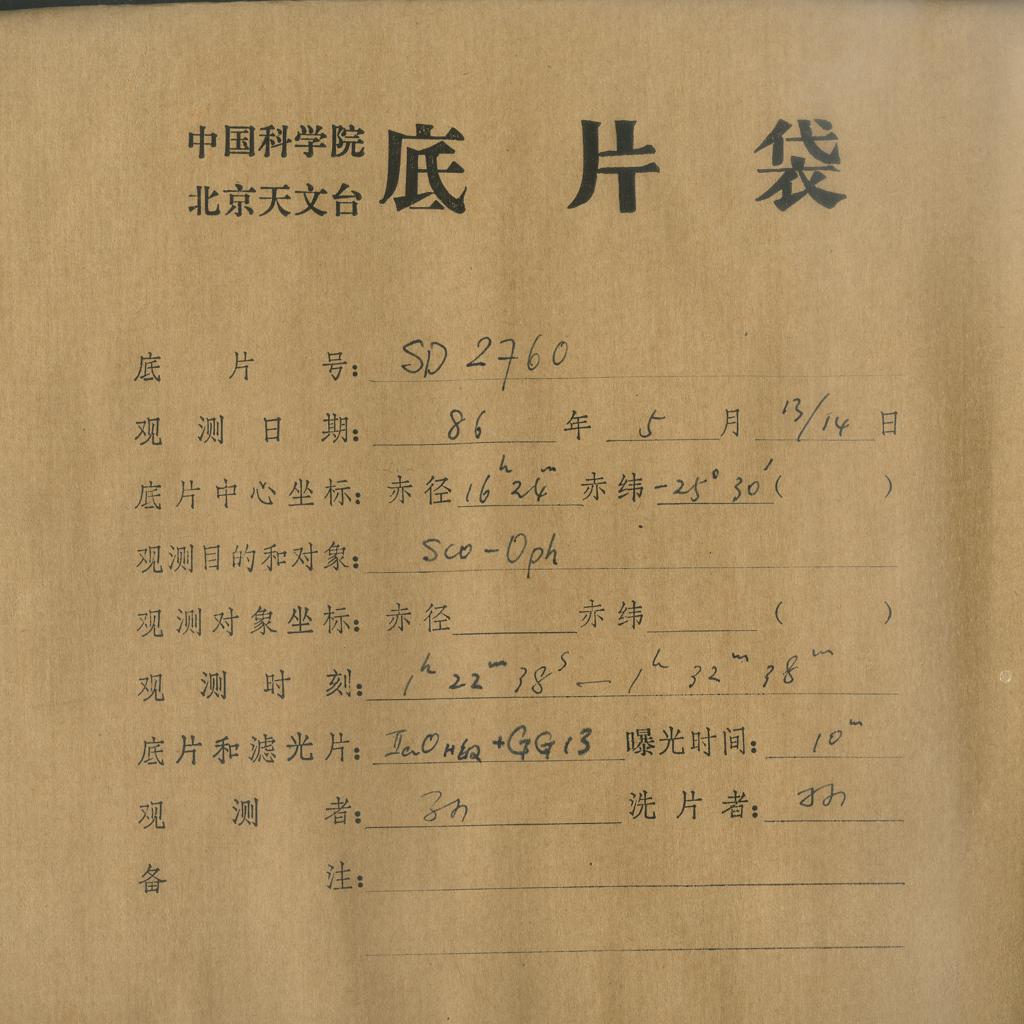 中国科学院
北京天文台
底片袋
底片号: SD 2760
观测日期: 86 年 5 月 13/14 日
底片中心坐标: 赤径 16h 24m 赤纬 -25° 30′ ( )
观测目的和对象: Sco-Oph
观测对象坐标: 赤径 赤纬 ( )
观测时刻: 1h 22m 38s — 1h 32m 38m
底片和滤光片: IIaO +GG13 曝光时间: 10m
观测者: 洗片者:
备注: